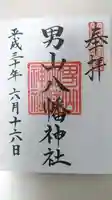 奉拝
男山八幡神社
平成三十年六月十六日